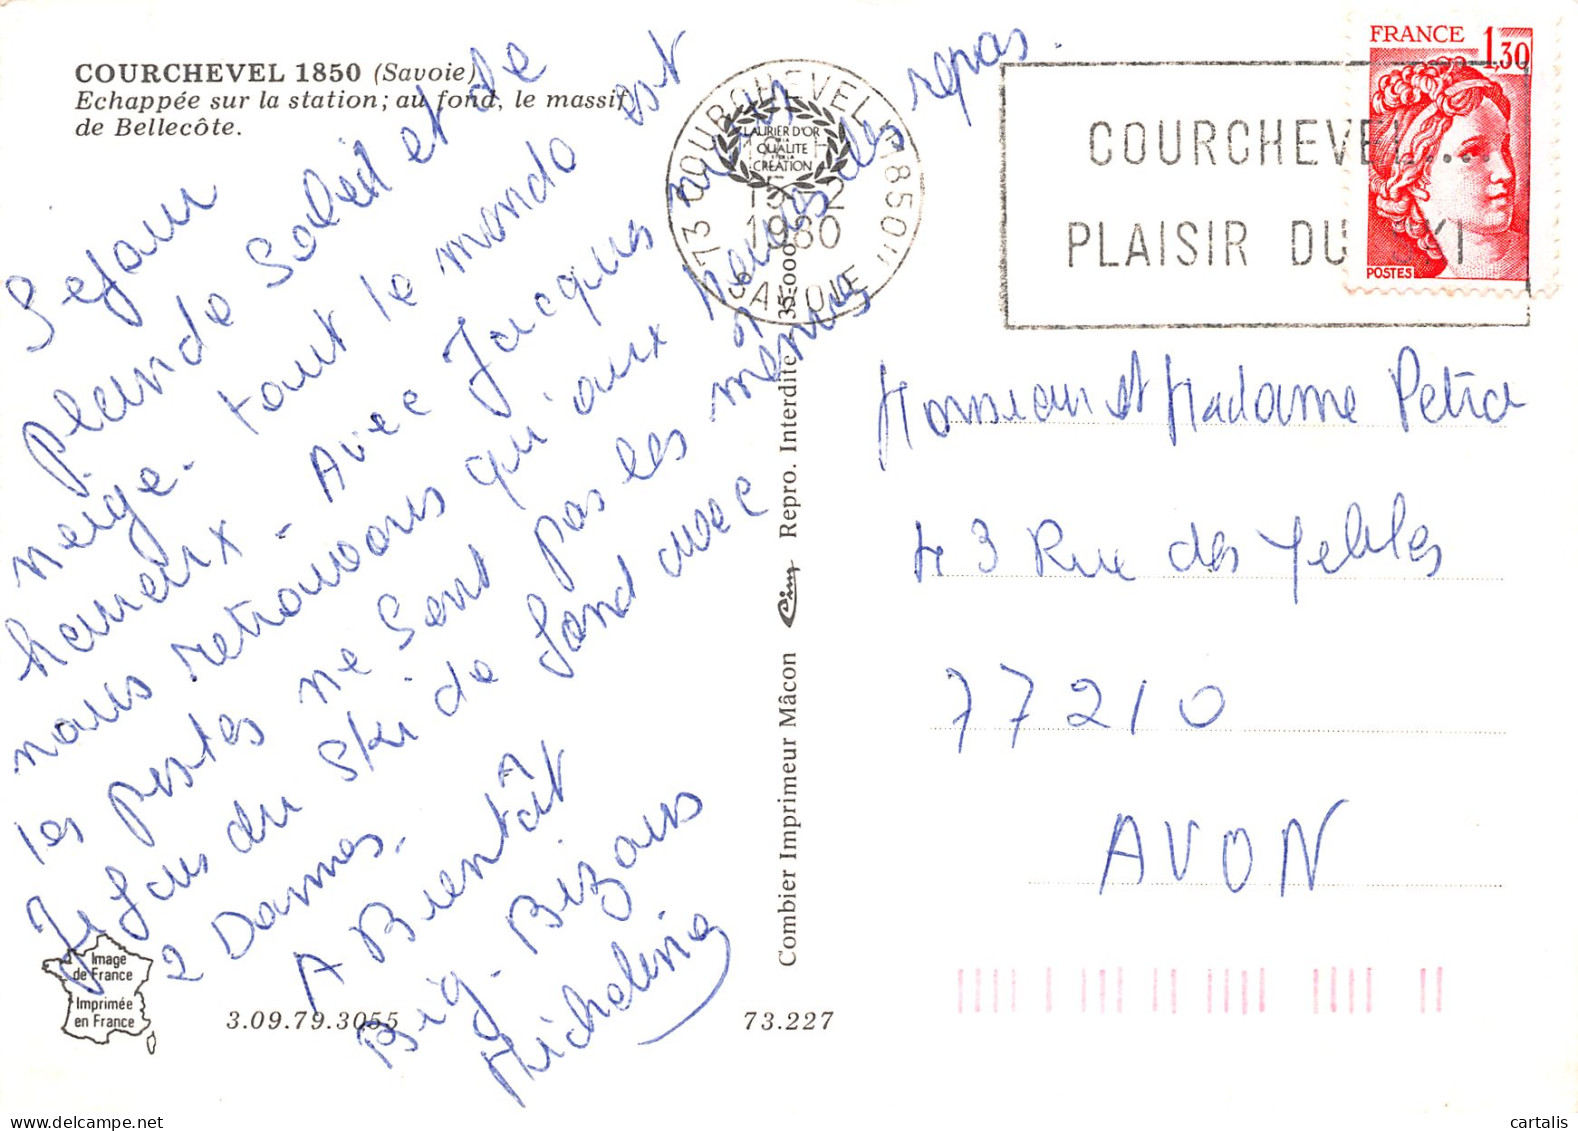 COURCHEVEL 1850 (Savoie)
Echappée sur la station; au fond, le massif
de Bellecôte.
Sejour
plein de Soleil et de
neige. tout le monde est
heureux - Avec Jacques nous
nous retrouvons qu'aux heures des repas.
les pistes ne Sont pas les mêmes
Je fais du ski de fond avec
2 Dames.
A Bientât
Big - Bizous
Micheline
Image
de France
Imprimée
en France
3.09.79.3055
73.227
Combier Imprimeur Mâcon Cim Repro. Interdite 35-000
LAURIER D'OR
DE LA
QUALITE
ET DE LA
CREATION
73 COURCHEVEL "1850"
1980
SAVOIE
COURCHEVEL....
PLAISIR DU SKI
FRANCE 1,30
POSTES
Monsieur et Madame Petra
43 Rue des Yebles
77210
AVON
cartalis